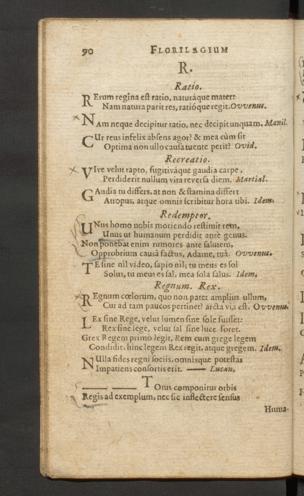 90 FLORILEGIUM
R.
Ratio.
RErum regina est ratio, naturáque mater:
Nam natura parit res, ratióque regit. Ovvenus.
NAm neque decipitur ratio, nec decipit unquam. Manil.
CUr reus infelix absens agor? & mea cùm sit
Optima non ullo causa tuente perit? Ovid.
Recreatio.
VIve velut rapto, fugitiváque gaudia carpe,
Perdiderit nullum vita reversa diem. Martial.
GAudia tu differs, at non & stamina differt
Atropos, atque omnis scribitur hora tibi. Idem.
Redemptor.
UNus homo nobis moriendo restituit rem,
Unus ut humanum perdidit antè genus.
Non ponebat enim rumores ante salutem,
Opprobrium causâ factus, Adame, tuâ. Ovvenus.
TE sine nil video, sapio nil, tu meus es sol
Solus, tu meus es sal, mea sola salus. Idem.
Regnum. Rex.
REgnum cœlorum, quo non patet amplius ullum,
Cur ad tam paucos pertinet? arcta via est. Ovvenus.
LEx sine Rege, velut lumen sine sole fuisset:
Rex sine lege, velut sal sine luce foret.
Grex Regem primò legit, Rem cum grege legem
Condidit, hinc legem Rex regit, atque gregem. Idem.
NUlla fides regni sociis, omnisque potestas
Impatiens consortis erit. — Lucan.
— — Totus componitur orbis
Regis ad exemplum, nec sic inflectere sensus
Huma-